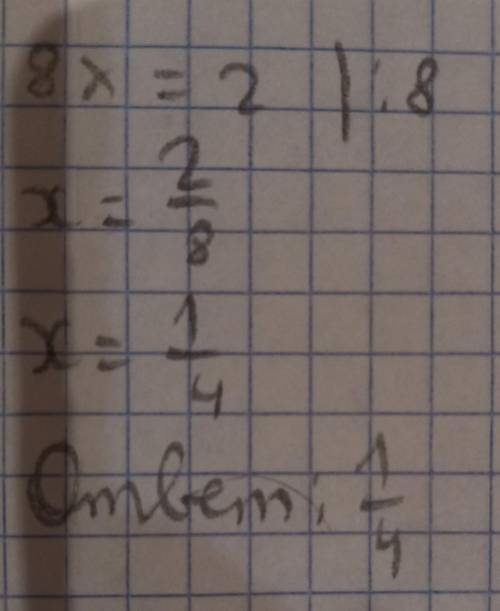 8x = 2 | : 8
x = 2/8
x = 1/4
Ответ: 1/4